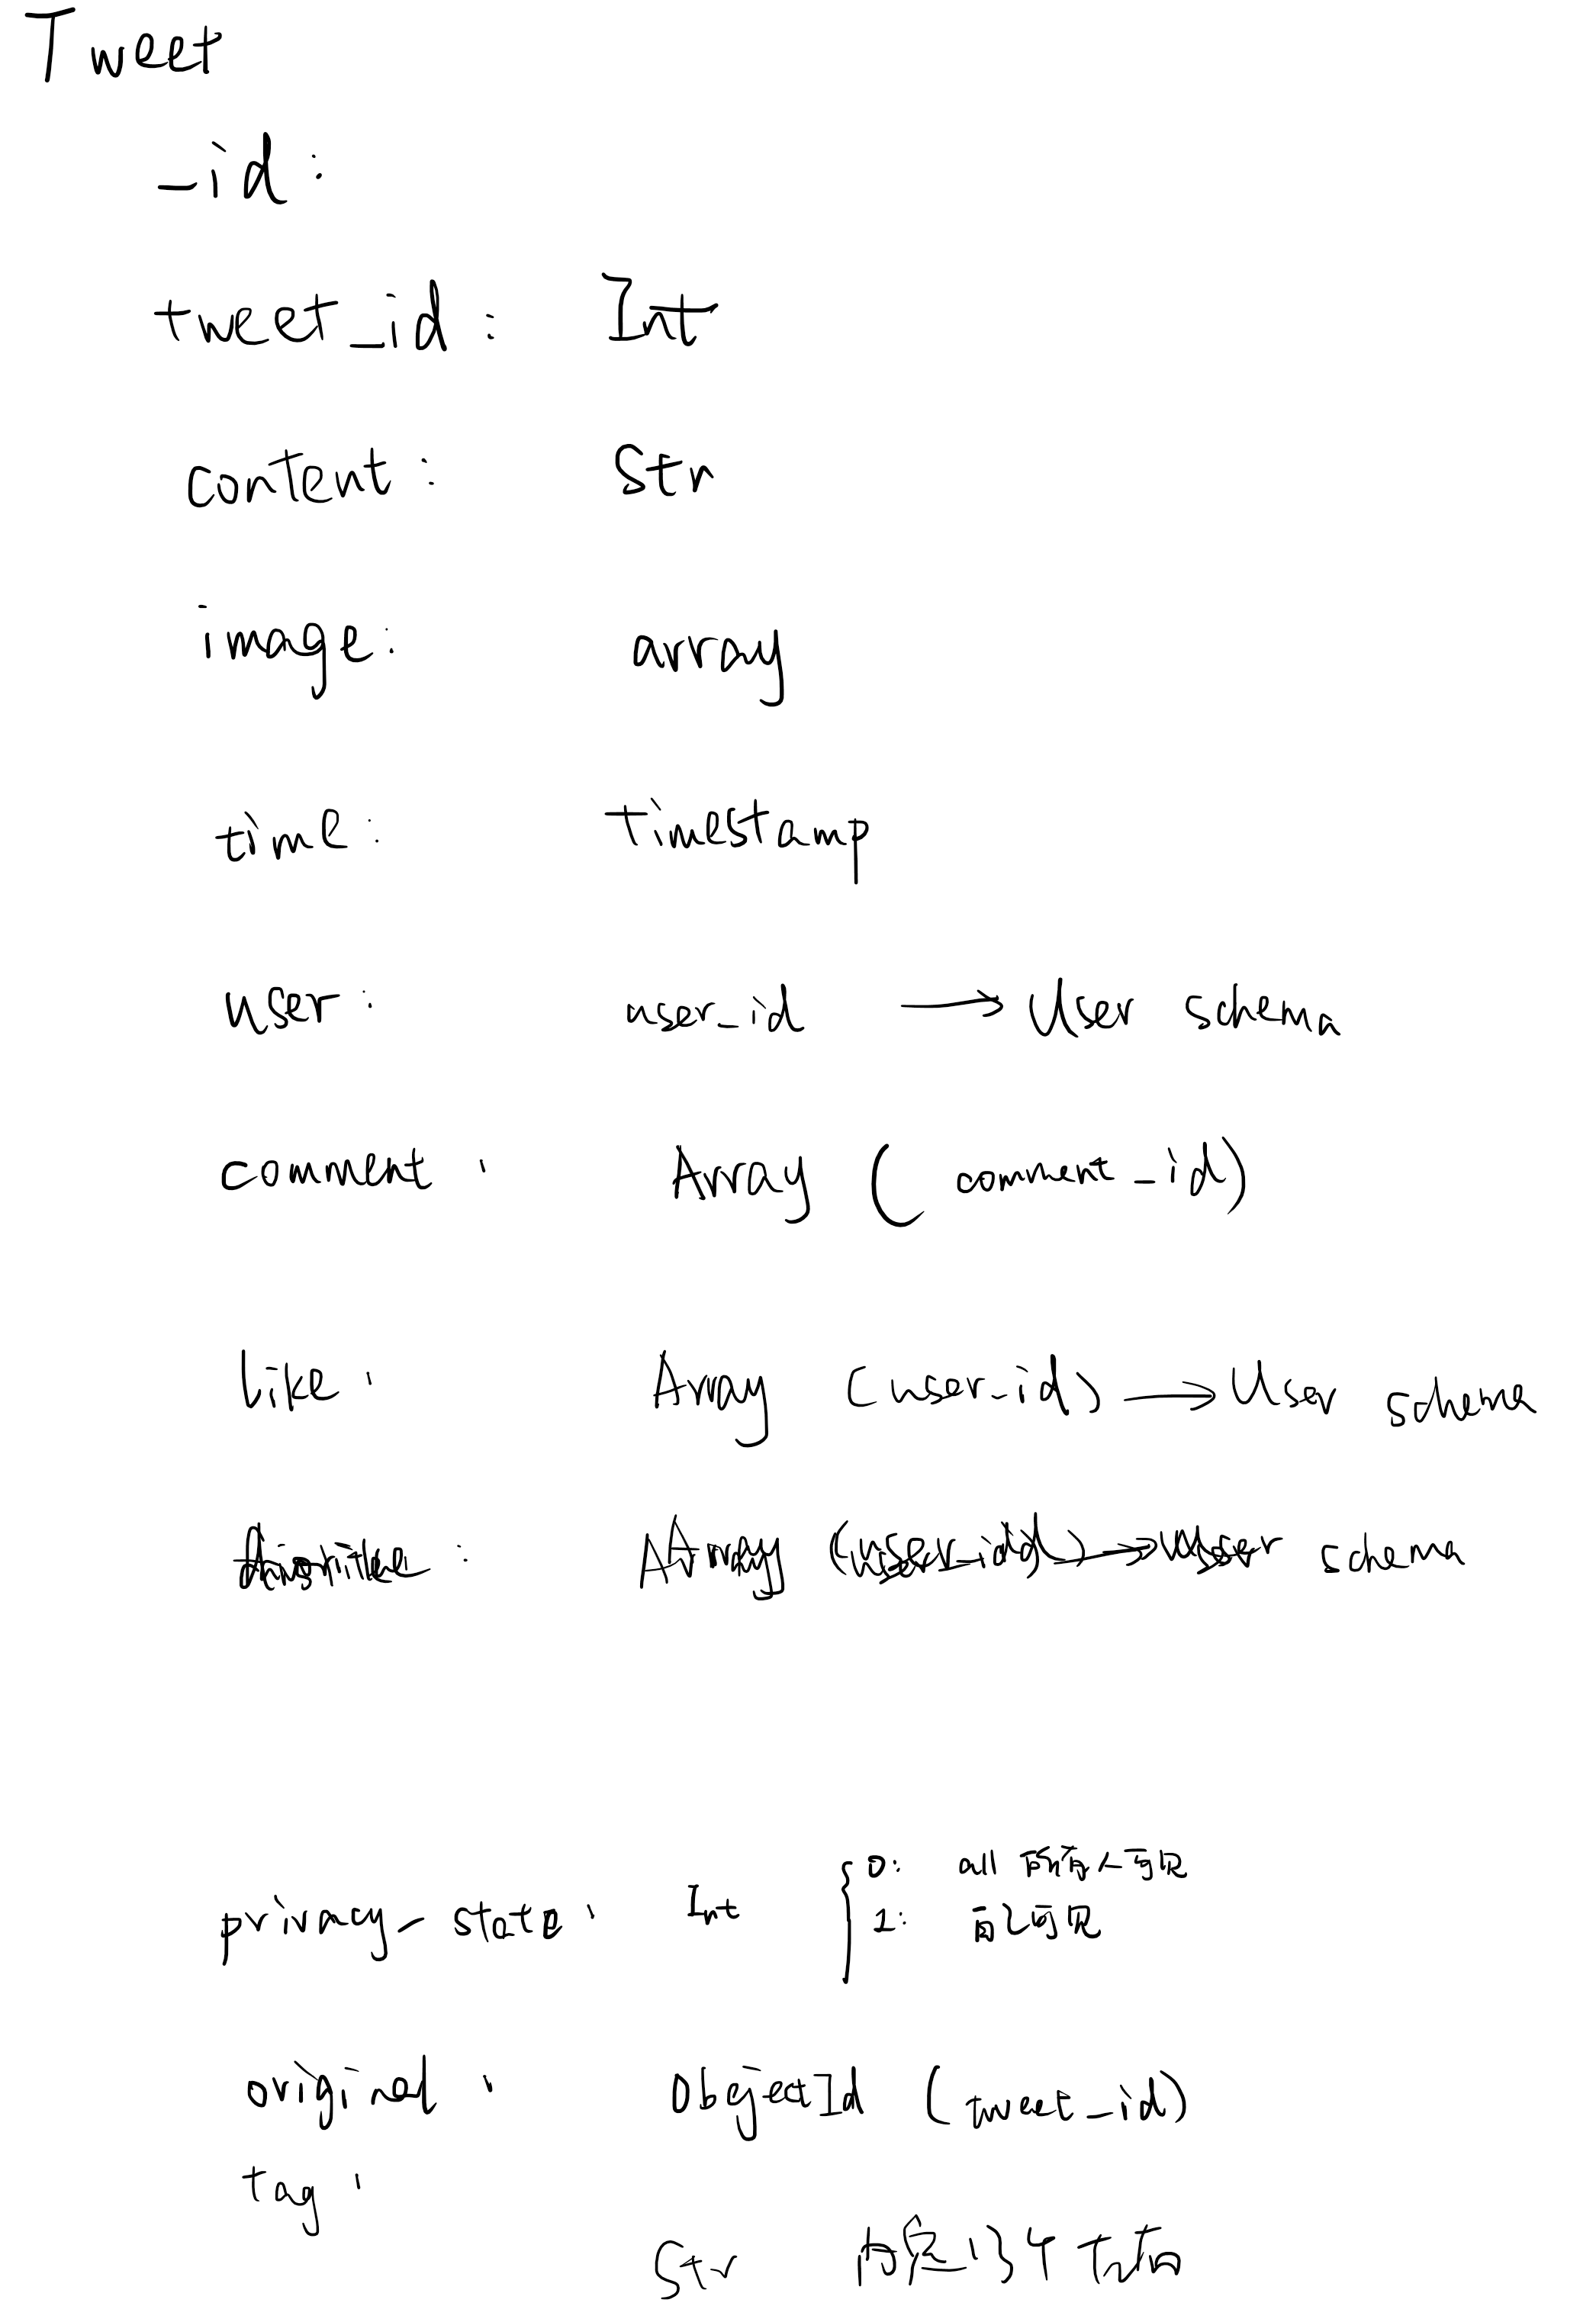 Tweet
_id:
tweet_id: Int
content: Str
image: array
time: timestamp
user: user_id → User schema
comment: Array (comment_id)
like: Array (user_id) → User schema
Array (user_id) → User schema
privacy_state: Int
0: all 所有人可见
1: 自己可见
original: ObjectId (tweet_id)
tag:
Str 内定